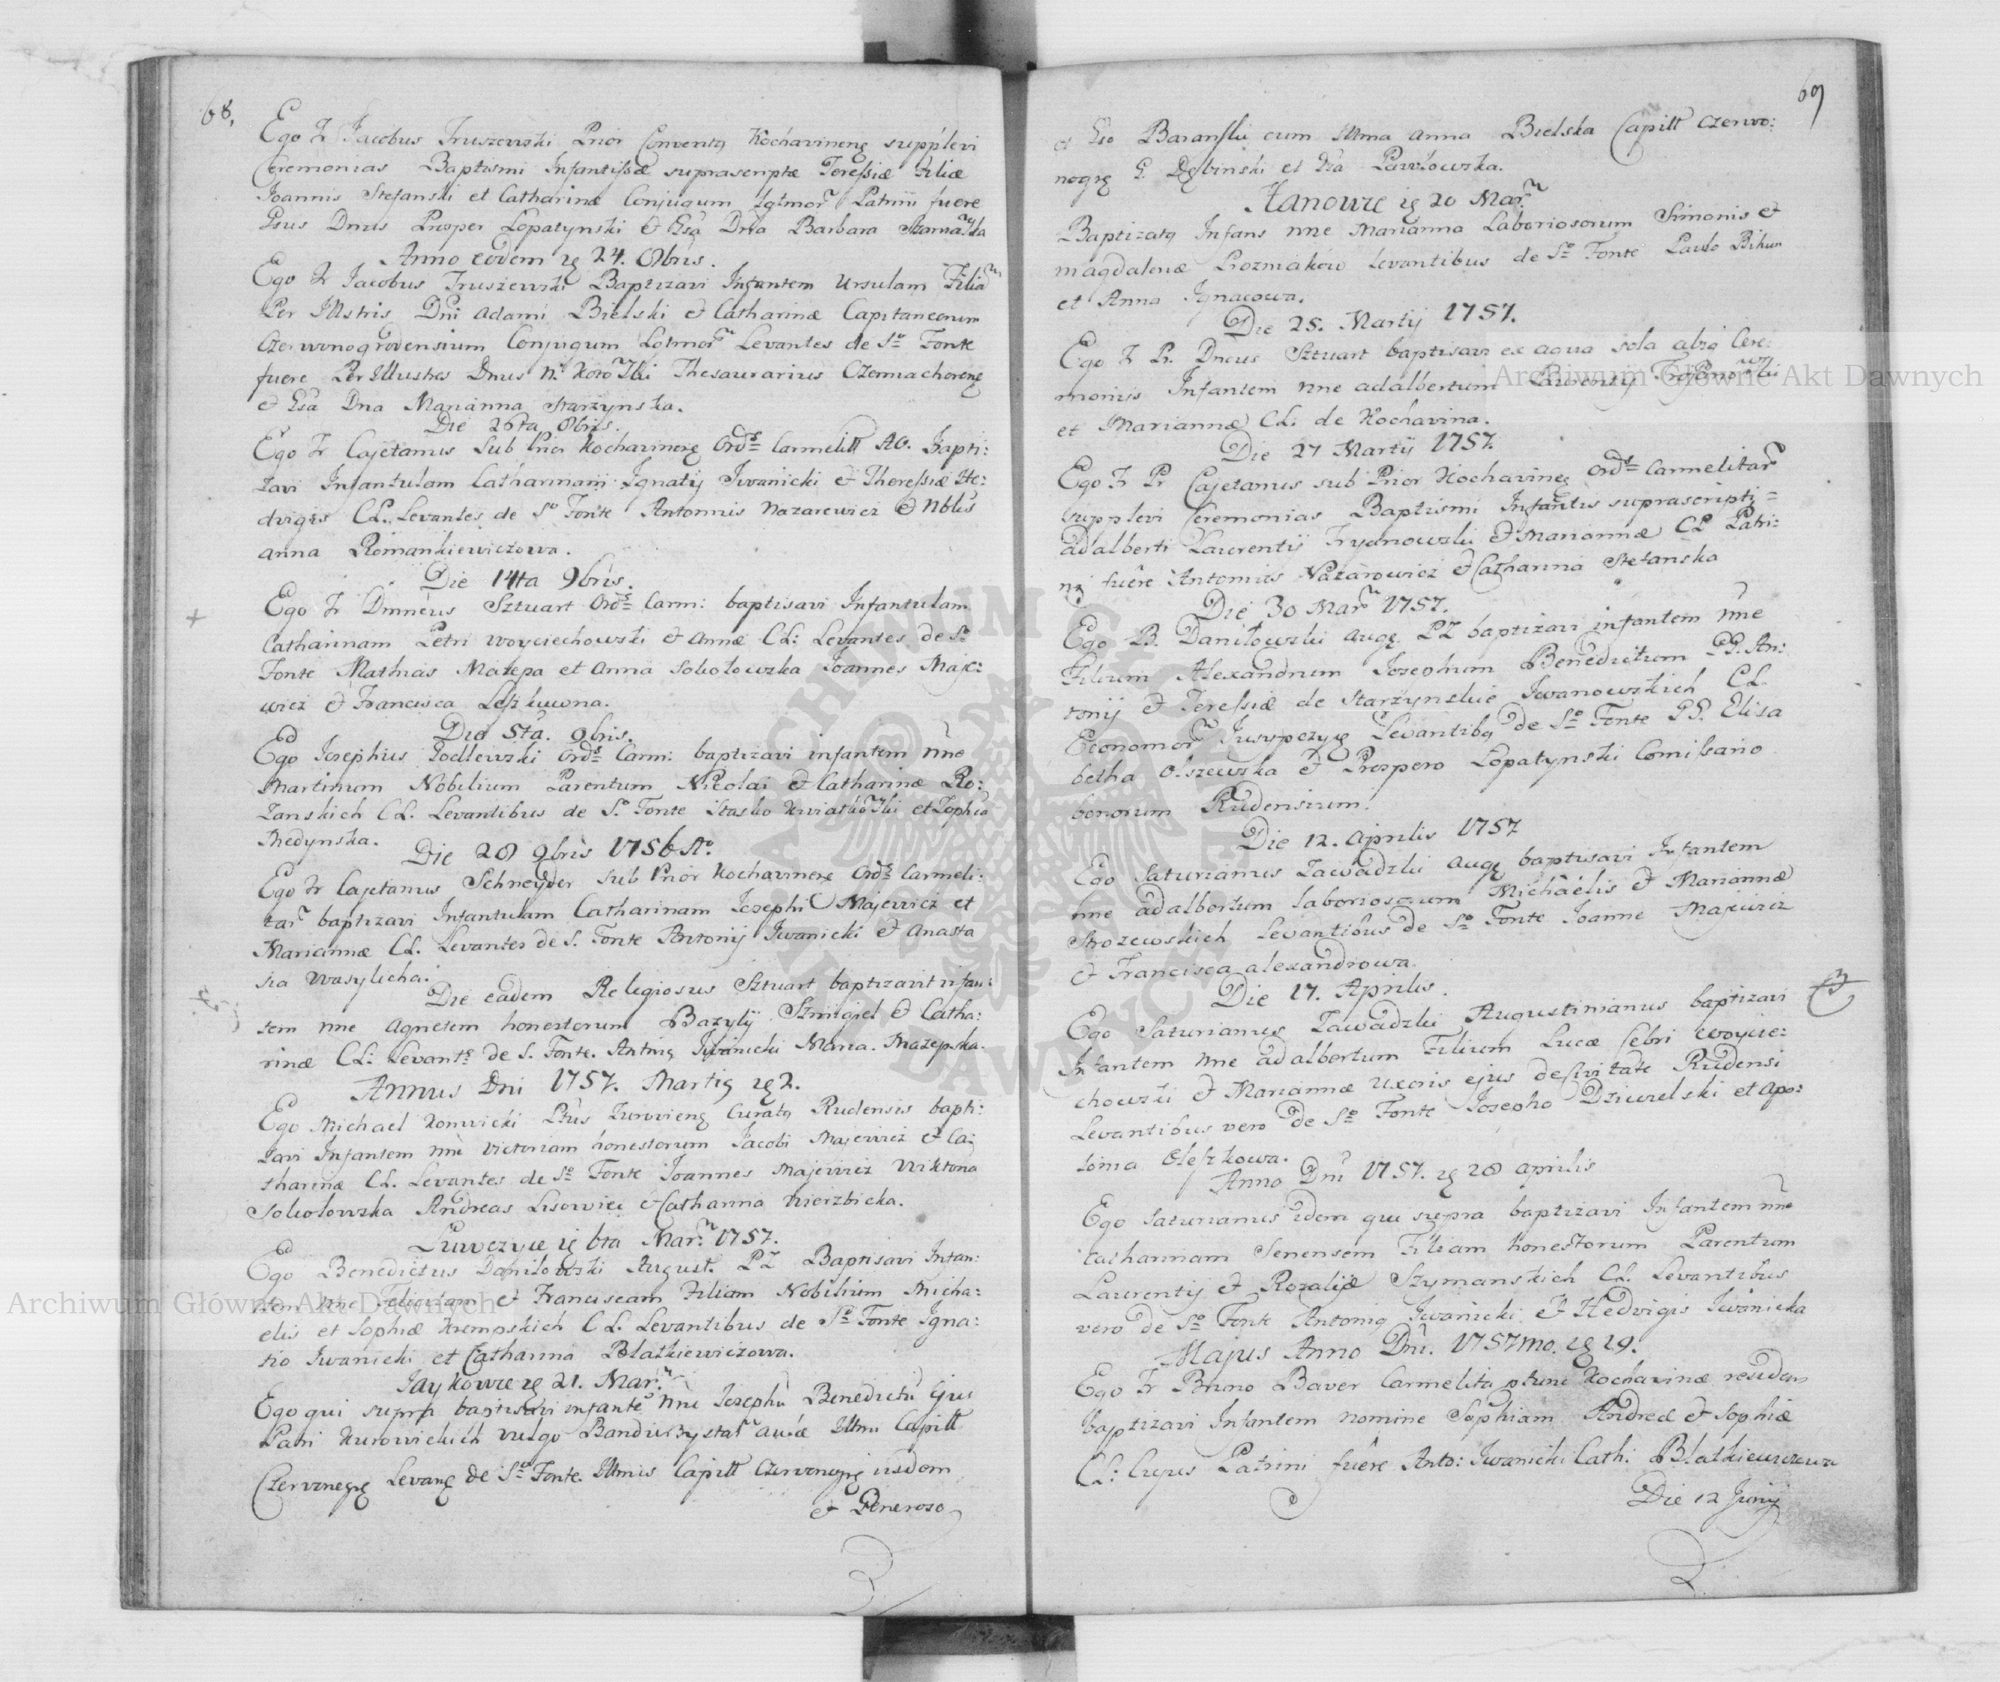 68.
Ego Fr Jacobus Truszewski Prior Conventq Kochavineng supplevi
Ceremonias Baptismi Infantissæ suprascriptæ Teressiæ Filiæ
Joannis Stefanski et Catharinæ Conjugum Lgtmor Patrini fuere
Gsus Dnus Prosper Lopatynski & Gsa Dna Barbara
Anno eodem 24. 8bris.
Ego Fr Jacobus Truszewski Baptizavi Infantem Ursulam Filiam
Per Illstris Dni Adami Bielski & Catharinæ Capitaneorum
Czerwonogrodensium Conjugum Lgtmor Levantes de So Fonte
fuere Per Illustres Dnus N. Thesaurarius
& Gsa Dna Marianna Starzynska.
Die 26ta 8bris.
Ego Fr Cajetanus Sub Prior Kochavineng Ords Carmelitt AO. Bapti:
zavi Infantulam Catharinam Ignatij Iwanicki & Theressiæ He:
dvigis CL. Levantes de So Fonte Antonius Nazarewicz & Nblis
Anna Romankiewiczowa.
Die 14ta 9bris.
Ego Fr Dmncus Sztuart Ords Carm: baptisavi Infantulam
Catharinam Petri Woyciechowski & Annæ CL: Levantes de So
Fonte Mathias Mazepa et Anna Sokolowska Joannes Maje:
wicz & Francisca Leszkuwna.
Die 5ta. 9bris.
Ego Josephus Podlewski Ords Carm: baptizavi infantem nne
Martinum Nobilium Parentum Nicolai & Catharinæ Ro:
zanskich CL. Levantibus de So Fonte Stasko et Zophia
Medynska.
Die 28 9bris 1756 Ao.
Ego Fr Cajetanus Schneyder Sub Prior Kochavineng Ords Carmeli:
tar baptizavi Infantulam Catharinam Josephi Majewicz et
Mariannæ CL. Levantes de S. Fonte Antonij Iwanicki & Anasta
sia Wasylicha.
Die eadem Religiosus Sztuart baptizavit infan:
tem nne Agnetem honestorum Bazylij Szmigiel & Catha:
rinæ CL: Levants de S. Fonte. Antniq Iwanicki Maria. Mazepska.
Annus Dni 1757. Martiq 2.
Ego Michael Komicki Curatq Rudensis bapti:
zavi Infantem nne Victoriam honestorum Jacobi Majewicz & Ca:
tharinæ CL. Levantes de So Fonte Joannes Majewicz Wiktoria
Sokolowska Andreas Lisowicz & Catharina Wierzbicka.
6ta Mar. 1757.
Ego Benedictus Danilowski August. PZ Baptisavi Infan:
tem nne & Franciscam Filiam Nobilium Micha:
elis et Sophiæ Krempskich CL. Levantibus de So Fonte Igna:
tio Iwanicki et Catharina Blatkiewiczowa.
Jaykowce 21. Mar.
Ego qui supra baptisavi infante nne Josephu Benedictu Gsi
Pauli Kurowickich vulgo Illmi Capitt
Czervonogrg Levang de So Fonte Illmis Capitt Czervonogrg iisdem
& Generoso
69
et Gso Baranski cum Illma Anna Bielska Capitt Czerwo:
nogrg G. Dębinski et Gsa Pawłowska.
Hanowce 20 Mar.
Baptizatq Infans nne Marianna Laboriosorum Simonis &
Magdalenæ Prozmakow Levantibus de So Fonte Paulo Bikun
et Anna Ignacowa.
Die 25. Martij 1757.
Ego Fr Pr. Dncus Sztuart baptisavi ex aqua sola absq Cere:
moniis Infantem nne Adalbertum Laurentij
et Mariannæ CL: de Kochavina.
Die 27 Martij 1757.
Ego Fr Pr Cajetanus Sub Prior Kochavineg Ords Carmelitar
supplevi Ceremonias Baptismi Infantis suprascripti=
Adalberti Laurentij Tryanowski & Mariannæ CL Patri:
ni fuere Antonius Nazarowicz & Catharina Stefanska
Die 30 Mar 1757.
Ego B. Daniłowski Augg. PZ baptizavi infantem nne
Filium Alexandrum Josephum Benedictum GG. An:
tonij & Teressiæ de Starzynskie Iwanowskich CL.
Economor Levantibq de So Fonte GG. Elisa
betha Olszewska & Prospero Lopatynski Comissario
bonorum Rudensium.
Die 12. Aprilis 1757
Ego Saturianus Zawadzki Augg baptisavi Infantem
nne Adalbertum laboriosorum Michaelis & Mariannæ
Mrozewskich Levantibus de So Fonte Joanne Majewicz
& Francisca Alexandrowa.
Die 17. Aprilis.
Ego Saturianus Zawadzki Augustinianus baptizavi
Infantem nne Adalbertum Filium Lucæ Cebri Woycie:
chowski & Mariannæ uxoris ejus de Civitate Rudensi
Levantibus vero de So Fonte Josepho Dziurelski et Apo:
lonia Oleszkowa.
Anno Dni 1757. 28 Aprilis
Ego Saturianus idem qui supra baptizavi Infantem nne
Catharinam Senensem Filiam honestorum Parentum
Laurentij & Rozaliæ Szymanskich CL. Levantibus
vero de So Fonte Antoniq Iwanicki & Hedvigis Iwanicka
Majus Anno Dni. 1757mo. 19.
Ego Fr Bruno Baver Carmelita ptunc Kochavinæ residens
baptizavi Infantem nomine Sophiam Andreæ & Sophiæ
CL: Cujus Patrini fuere Anto: Iwanicki Cath: Blatkiewiczowa
Die 12 Junij
Archiwum Główne Akt Dawnych
Archiwum Główne Akt Dawnych
ARCHIWUM GŁÓWNE AKT DAWNYCH